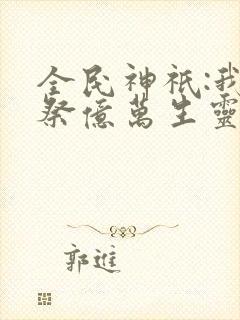 全民神祇:我
祭億萬生靈
郭進